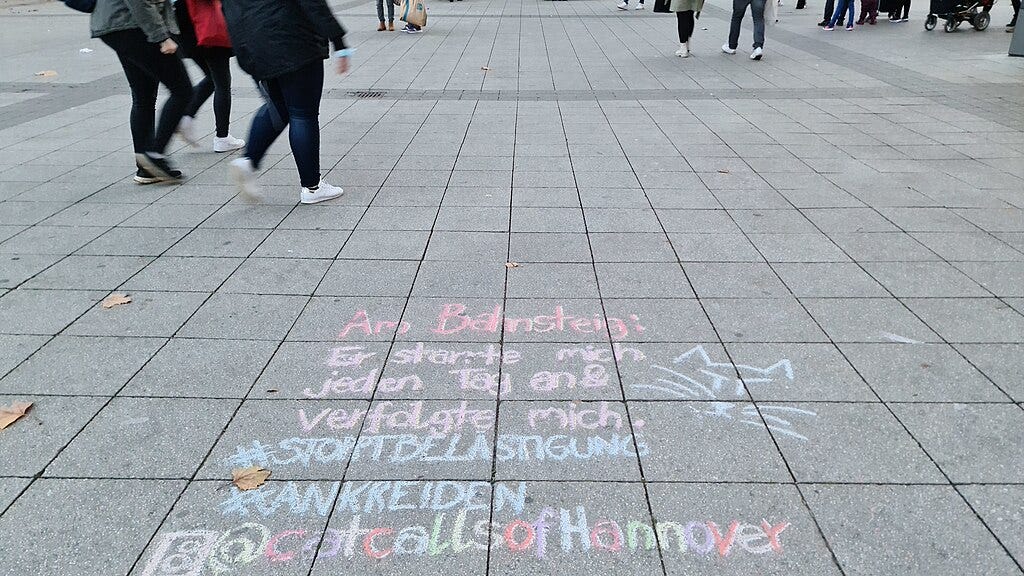 Am Bahnsteig:
Er starrte mich
jeden Tag an &
verfolgte mich.
#STOPPTBELÄSTIGUNG
#ANKREIDEN
@catcallsofHannover